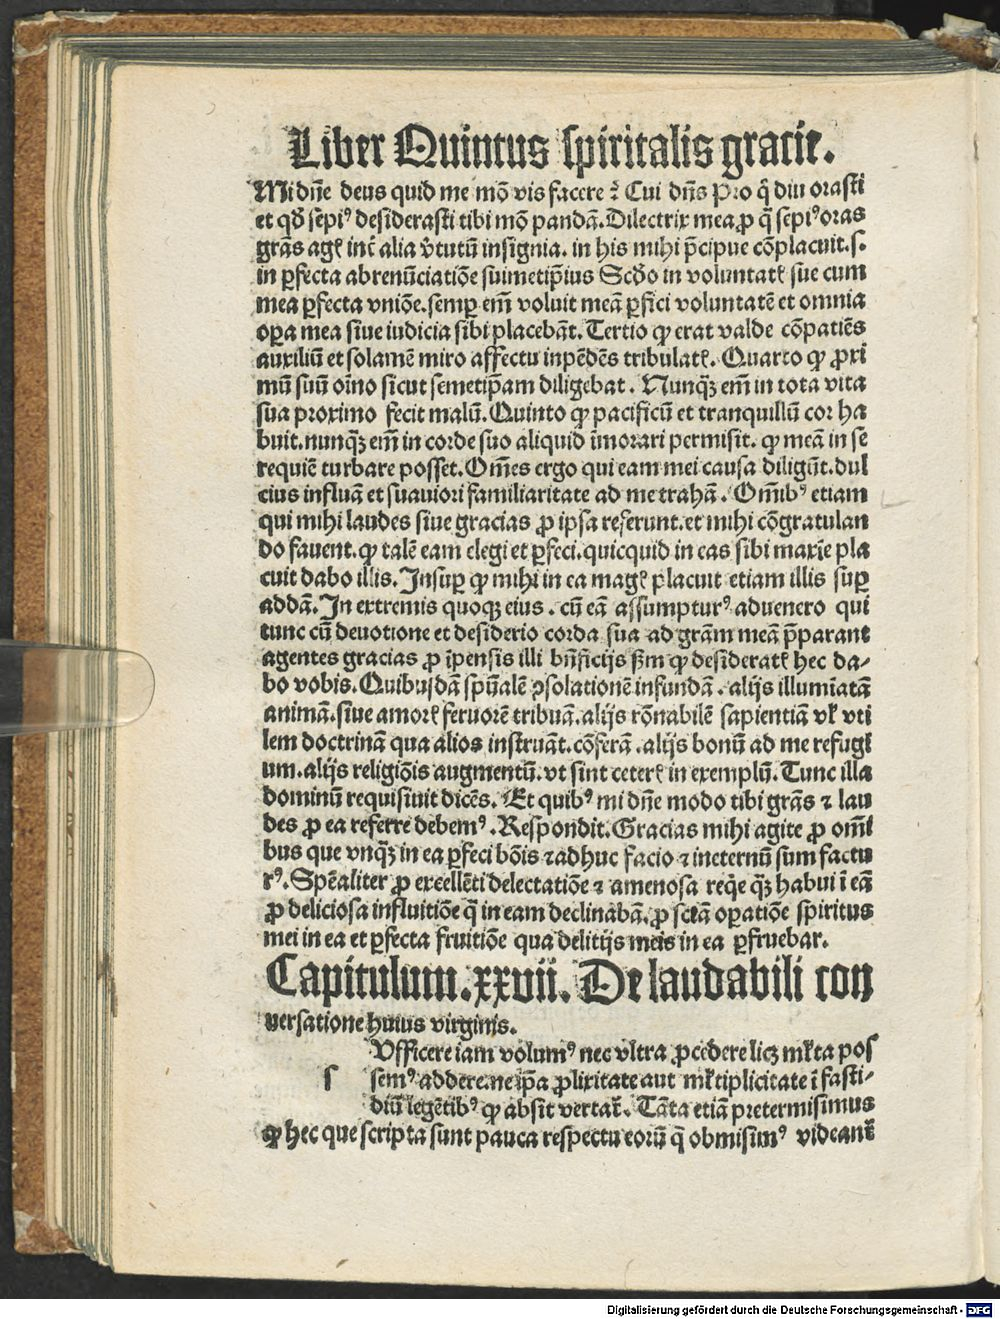 Liber Quintus spiritalis gracie.
Mi dn̄e deus quid me mō vis facere? Cui dn̄s Pro q̄ diu orasti
et qđ sepiꝰ desiderasti tibi mō pandā. Dilectrix mea ꝓ q̄ sepiꝰ oras
grās ageƚ inƚ alia v̄tutū insignia. in his mihi p̄cipue cōplacuit. s.
in ꝑfecta abrenūciatiōe suimetip̄ius Scđo in voluntatƚ sue cum
mea ꝑfecta vniōe. semꝑ em̄ voluit meā ꝑfici voluntatē et omnia
oꝑa mea siue iudicia sibi placebāt. Tertio ꝙ erat valde cōpatiēs
auxiliū et solamē miro affectu inpēdēs tribulatƚ. Quarto ꝙ ꝓxi
mū suū oīno sicut semetip̄am diligebat. Nunqꝫ̄ em̄ in tota vita
sua proximo fecit malū. Quinto ꝙ pacificū et tranquillū cor ha
buit. nunqꝫ̄ em̄ in corde suo aliquid īmorari permisit. ꝙ meā in se
requiē turbare posset. Om̄es ergo qui eam mei causa diligūt. dul
cius influā et suauiori familiaritate ad me trahā. Om̄ibꝰ etiam
qui mihi laudes siue gracias ꝓ ipsa referunt. et mihi cōgratulan
do fauent. ꝙ talē eam elegi et ꝑfeci. quicquid in eas sibi maxīe pla
cuit dabo illis. Insuꝑ ꝙ mihi in ea magƚ placuit etiam illis suꝑ
addā. In extremis quoqꝫ eius. cū eā assumpturꝰ aduenero qui
tunc cū deuotione et desiderio corda sua ad grām meā p̄parant
agentes gracias ꝓ īpensis illi bn̄ficijs ẜm ꝙ desideratƚ hec da-
bo vobis. Quibusdā spūalē ꝯsolationē infundā. alijs illumīatā
animā. siue amorƚ feruorē tribuā. alijs rōnabilē sapientiā vƚ vti
lem doctrinā qua alios instruāt. cōferā. alijs bonū ad me refugi
um. alijs religiōis augmentū. vt sint ceterƚ in exemplū. Tunc illa
dominū requisiuit dicēs. Et quibꝰ mi dn̄e modo tibi grās ⁊ lau
des ꝓ ea referre debemꝰ. Respondit. Gracias mihi agite ꝓ om̄i
bus que vnqꝫ̄ in ea ꝑfeci bōis ⁊ adhuc facio ⁊ ineternū sum factu
rꝰ. Spēaliter ꝓ excellēti delectatiōe ⁊ amenosa reqͤe qꝫ̄ habui ī eā
ꝓ deliciosa influitiōe q̄ in eam declinabā. ꝓ sctā oꝑatiōe spiritus
mei in ea et ꝑfecta fruitiōe qua delitijs meis in ea ꝑfruebar.
Capitulum. xxvii. De laudabili con
uersatione huius virginis.
Vfficere iam volumꝰ nec vltra ꝓcedere licꝫ mƚta pos
s semꝰ addere. ne ip̄a ꝓlixitate aut mƚtiplicitate ī fasti-
diū legētibꝰ ꝙ absit vertaƚ. Tāta etiā pretermisimus
ꝙ hec que scripta sunt pauca respectu eorū q̄ obmisimꝰ videanƚ
Digitalisierung gefördert durch die Deutsche Forschungsgemeinschaft - DFG